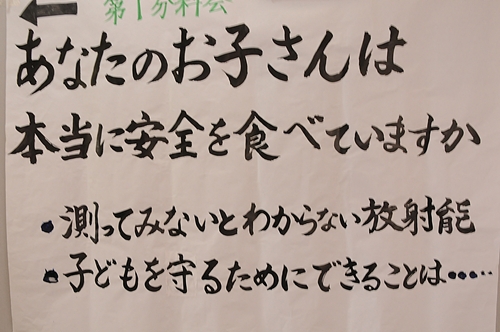 第1分科会
あなたのお子さんは
本当に安全を食べていますか
・測ってみないとわからない放射能
・子どもを守るためにできることは……